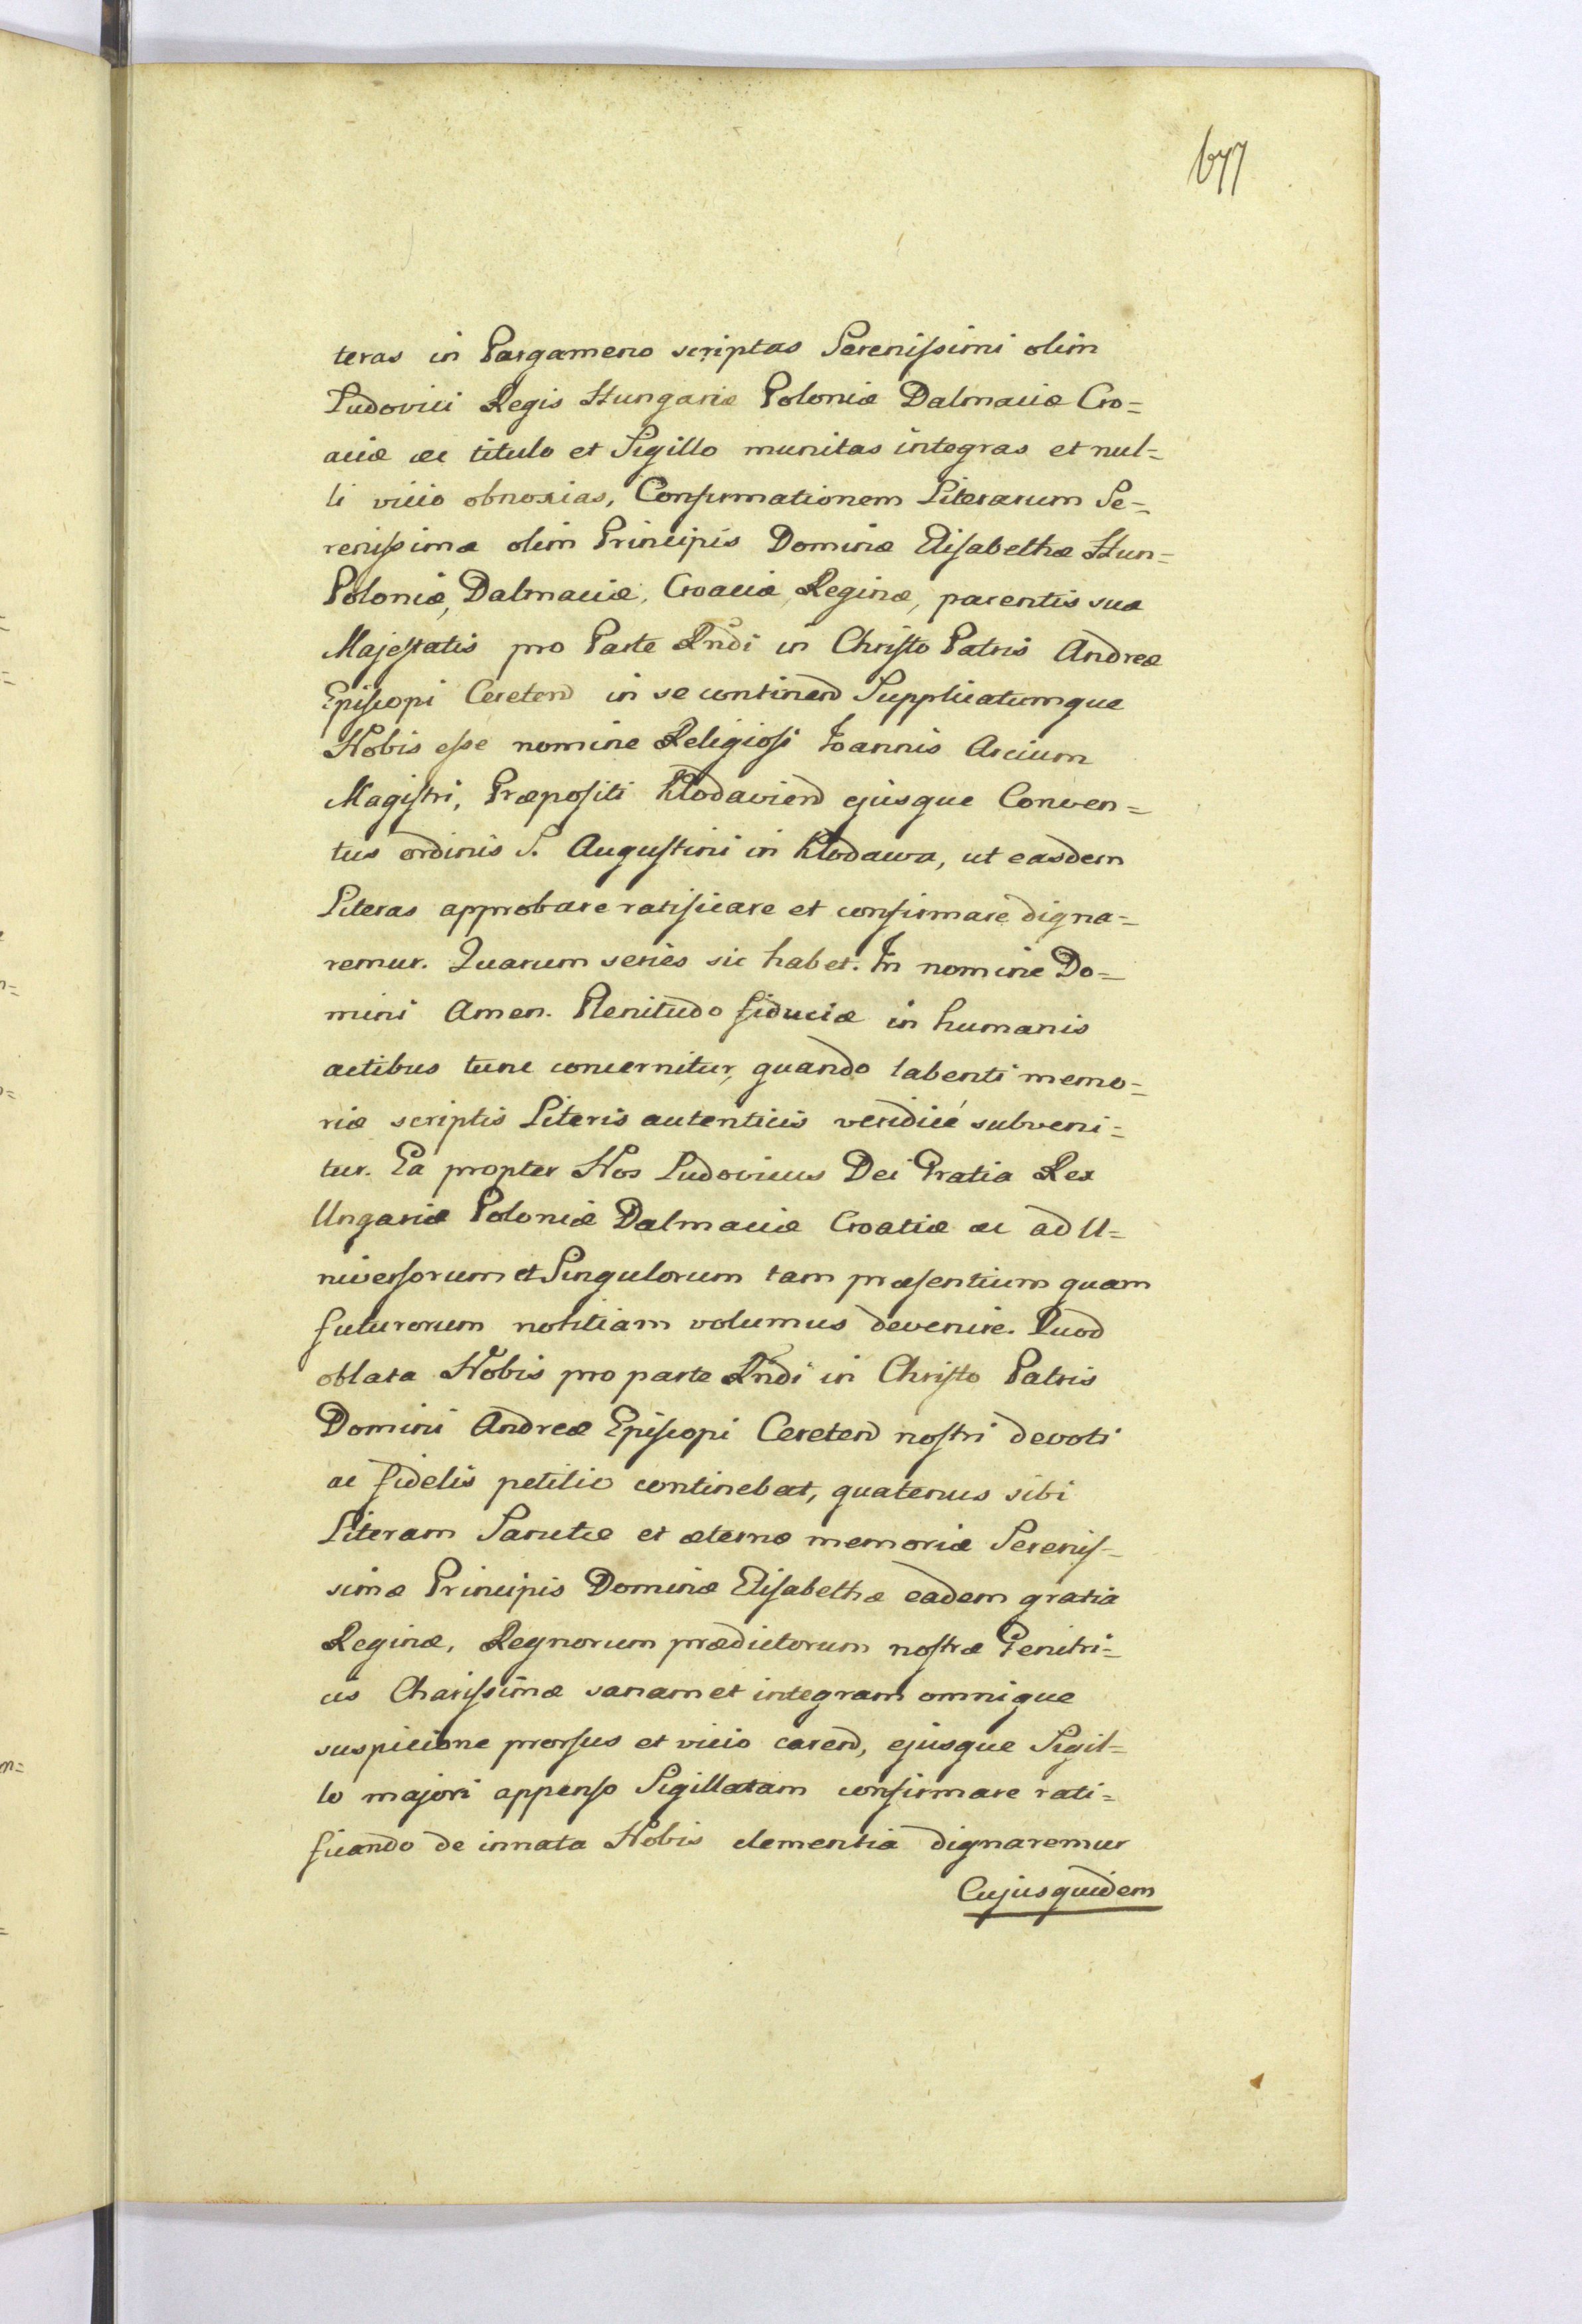 677
teras in Pargameno scriptas Serenissimi olim
Ludovici Regis Hungariæ Poloniæ Dalmaciæ Cro=
aciæ ac titulo et Sigillo munitas integras et nul=
li vicio obnoxias, Confirmationem Literarum Se=
renissimæ olim Principis Dominæ Elisabethæ Hun=
Poloniæ, Dalmaciæ, Croaciæ, Reginæ, parentis suæ
Majestatis pro Parte Rndi in Christo Patris Andreæ
Episcopi Ceretend in se continend Supplicatumque
Nobis esse nomine Religiosi Joannis Arcium
Magistri, Præpositi Klodaviend ejusque Conven=
tus ordinis S. Augustini in Klodawa, ut easdem
Literas approbare ratificare et confirmare digna=
remur. Quarum series sic habet. In nomine Do=
mini Amen. Plenitudo fiduciæ in humanis
actibus tunc concernitur, quando labenti memo=
riæ scriptis Literis autenticis veridicé subveni=
tur. Ea propter Nos Ludovicus Dei Gratia Rex
Ungariæ Poloniæ Dalmaciæ Croatiæ ac ad U=
niversorum et Singulorum tam præsentium quam
futurorum notitiam volumus devenire. Quod
oblata Nobis pro parte Rndi in Christo Patris
Domini Andreæ Episcopi Ceretend nostri devoti
ac fidelis petitio continebat, quatenus sibi
Literam Sanctæ et æternæ memoriæ Serenis=
simæ Principis Dominæ Elisabethæ eadem gratia
Reginæ, Regnorum prædictorum nostræ Genitri=
cis Charissimæ sanam et integram omnique
suspicione prorsus et vicio carend, ejusque Sigil=
lo majori appenso Sigillatam confirmare rati=
ficando de innata Nobis clementia dignaremur
Cujusquidem